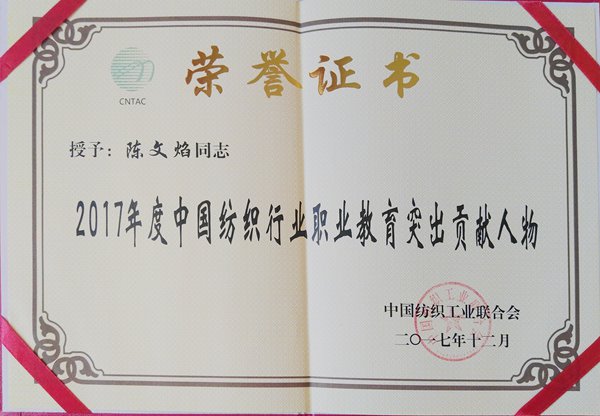 荣誉证书
CNTAC
授予：陈文焰同志
2017年度中国纺织行业职业教育突出贡献人物
中国纺织工业联合会
二〇一七年十二月